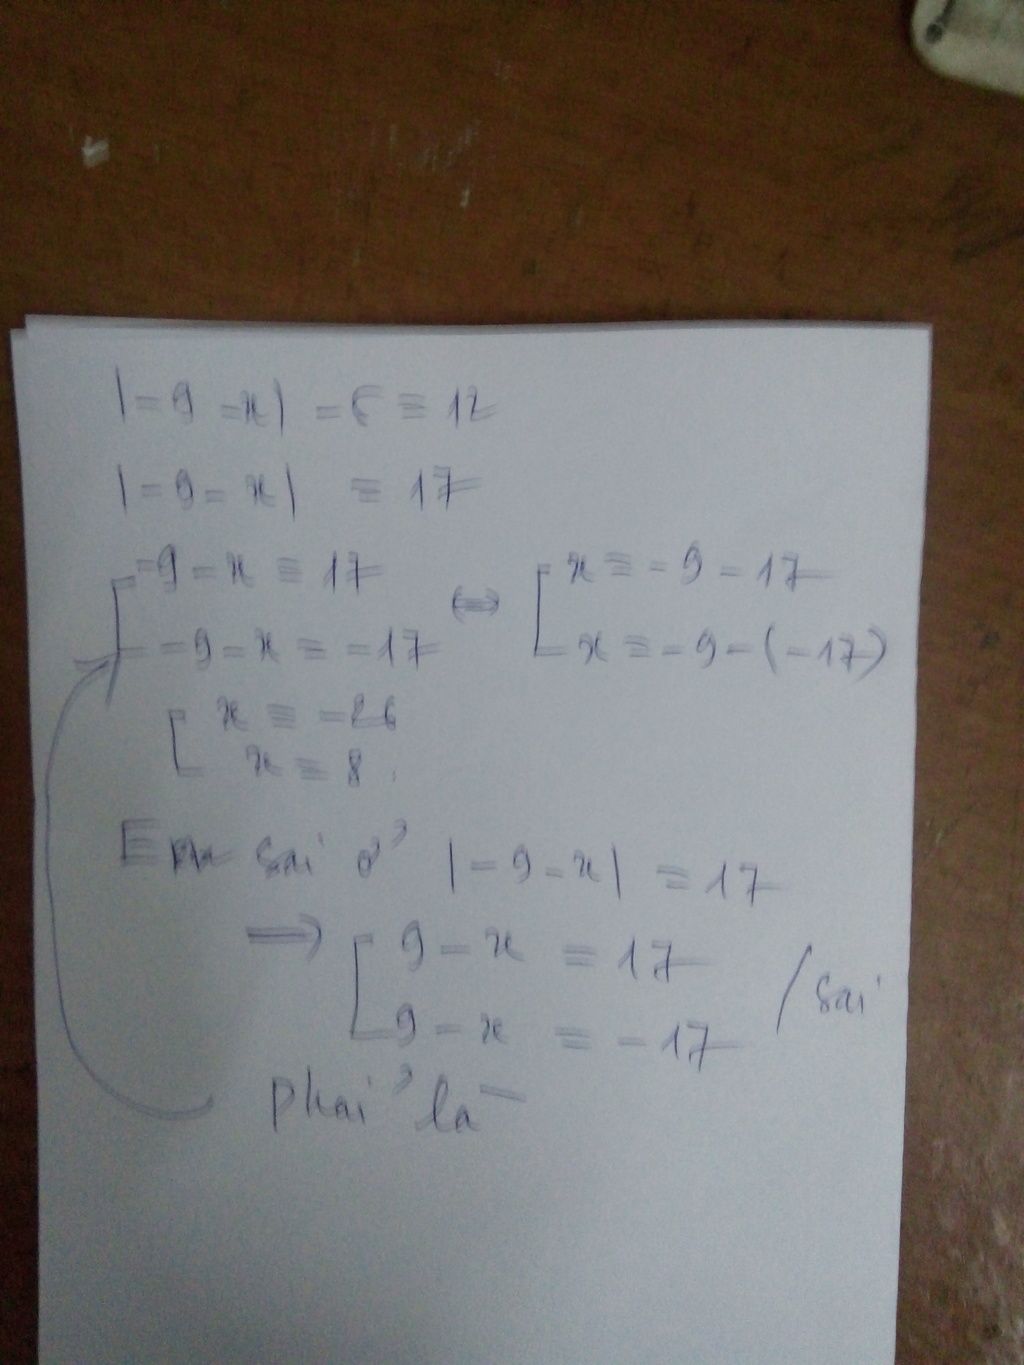 |-9-x| -5 = 12
|-9-x| = 17
[ -9-x = 17 ⇔ [ x = -9-17
-9-x = -17 x = -9-(-17)
[ x = -26
x = 8.
Em sai ở |-9-x| = 17
⟹ [ 9-x = 17
9-x = -17 / sai
phải là